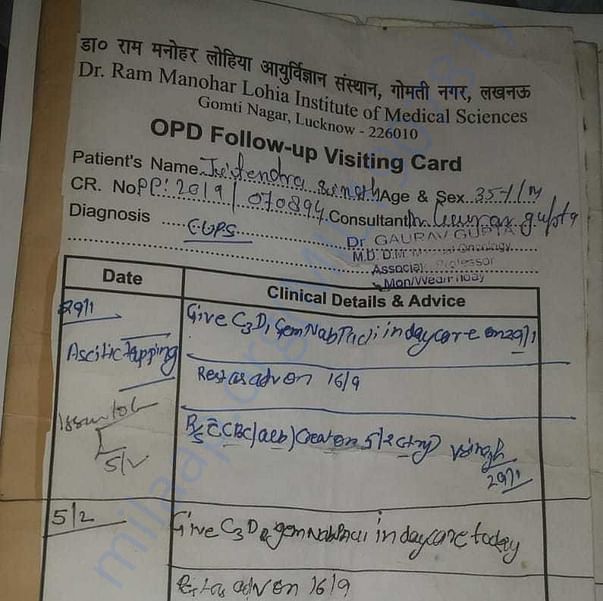 डा० राम मनोहर लोहिया आयुर्विज्ञान संस्थान, गोमती नगर, लखनऊ
Dr. Ram Manohar Lohia Institute of Medical Sciences
Gomti Nagar, Lucknow - 226010
OPD Follow-up Visiting Card
Patient's Name Jitendra Singh Age & Sex 35y/m
CR. No. PP: 2019/070894 Consultant Dr. Gaurav Gupta
Diagnosis CUPS
Dr GAURAV GUPTA
M.D. D.M Oncology
Associate Professor
Mon/Wed/Friday
Date Clinical Details & Advice
29/1 Give C3D1 Gem Nab Pacli in daycare on 29/1
Ascitic tapping
Rest as adv on 16/9
R/S c CBC/alb/Creat on 5/2
5/2
29/1
5/2 Give C3D8 gem Nab Pacli in daycare today
Rest as adv on 16/9
milaap.org